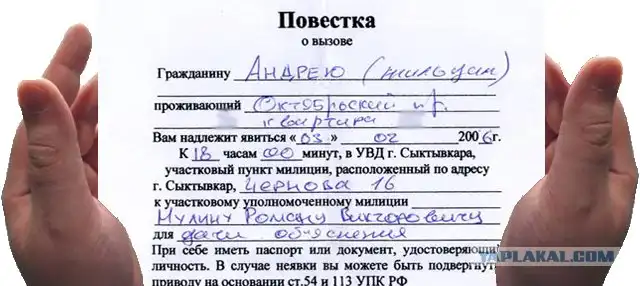 Повестка
о вызове
Гражданину Андрею (жильцам)
проживающий Октябрьский пр.
квартира
Вам надлежит явиться «03» 02 2006г.
К 18 часам 00 минут, в УВД г. Сыктывкара,
участковый пункт милиции, расположенный по адресу
г. Сыктывкар, Чернова 16
к участковому уполномоченному милиции
Мулину Роману Викторовичу
для дачи объяснения
При себе иметь паспорт или документ, удостоверяющий
личность. В случае неявки вы можете быть подвергнуты
приводу на основании ст.54 и 113 УПК РФ
YAPLAKAL.COM